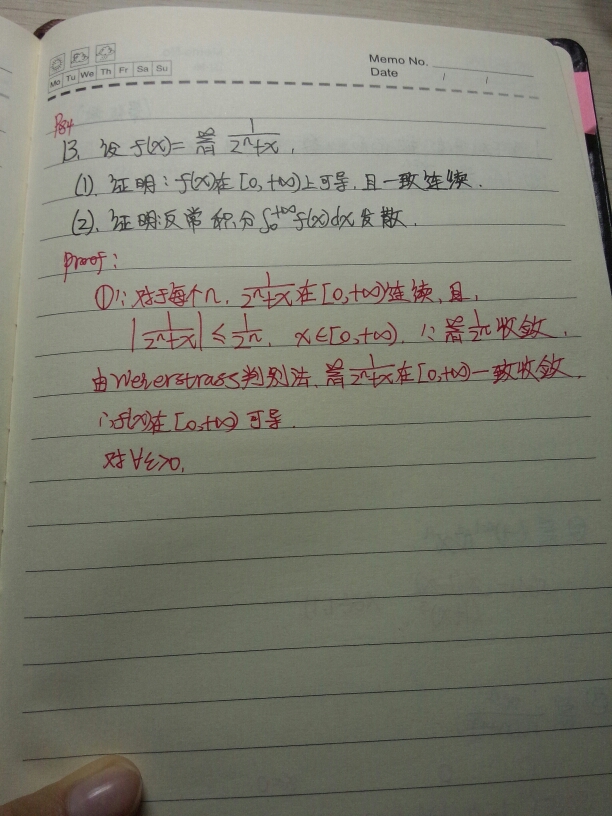 Memo No.
Mo Tu We Th Fr Sa Su
Date / /
P84
13. 设 f(x) = ∑_{n=1}^{∞} 1/(2^n+x).
(1). 证明: f(x)在[0,+∞)上可导,且一致连续.
(2). 证明:反常积分∫_0^{+∞} f(x)dx 发散.
proof:
①∵对于每个n, 1/(2^n+x)在[0,+∞)连续,且,
|1/(2^n+x)| ≤ 1/2^n, x∈[0,+∞), ∵∑_{n=1}^{∞} 1/2^n 收敛,
由Weierstrass判别法, ∑_{n=1}^{∞} 1/(2^n+x)在[0,+∞)一致收敛,
∴f(x)在[0,+∞)可导.
对∀ε>0,